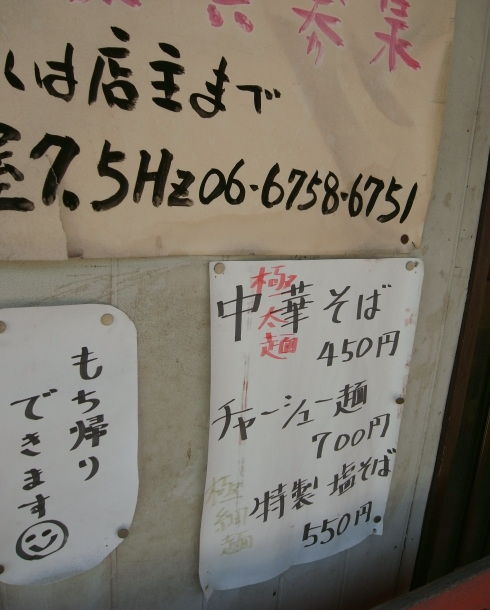 募集
くは店主まで
屋7.5Hz06-6758-6751
極太麺
中華そば
450円
チャーシュー麺
700円
極細麺
特製塩そば
550円
もち帰り
できます